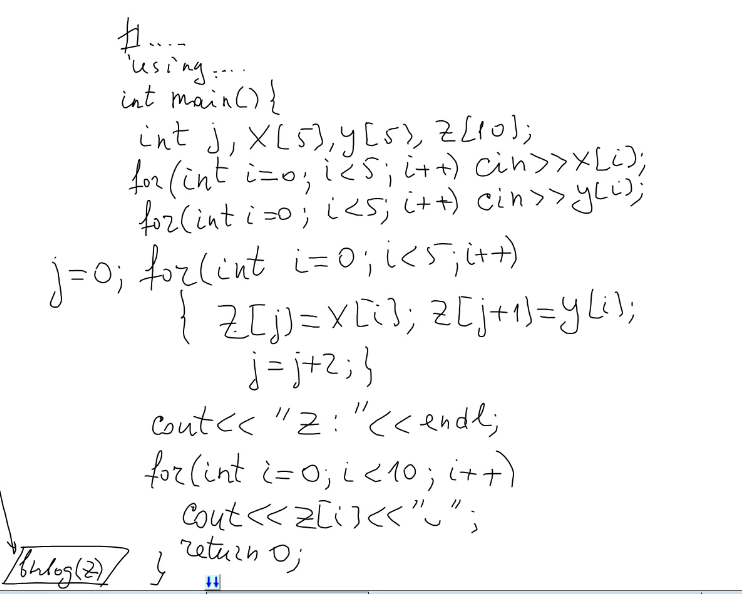 #....
using....
int main(){
int j, X[5], y[5], Z[10];
for(int i=0; i<5; i++) cin>>x[i];
for(int i=0; i<5; i++) cin>>y[i];
j=0; for(int i=0; i<5; i++)
{ Z[j]=X[i]; Z[j+1]=y[i];
j=j+2; }
cout<< "Z: "<<endl;
for(int i=0; i<10; i++)
cout<<Z[i]<<"⌣";
return 0;
}